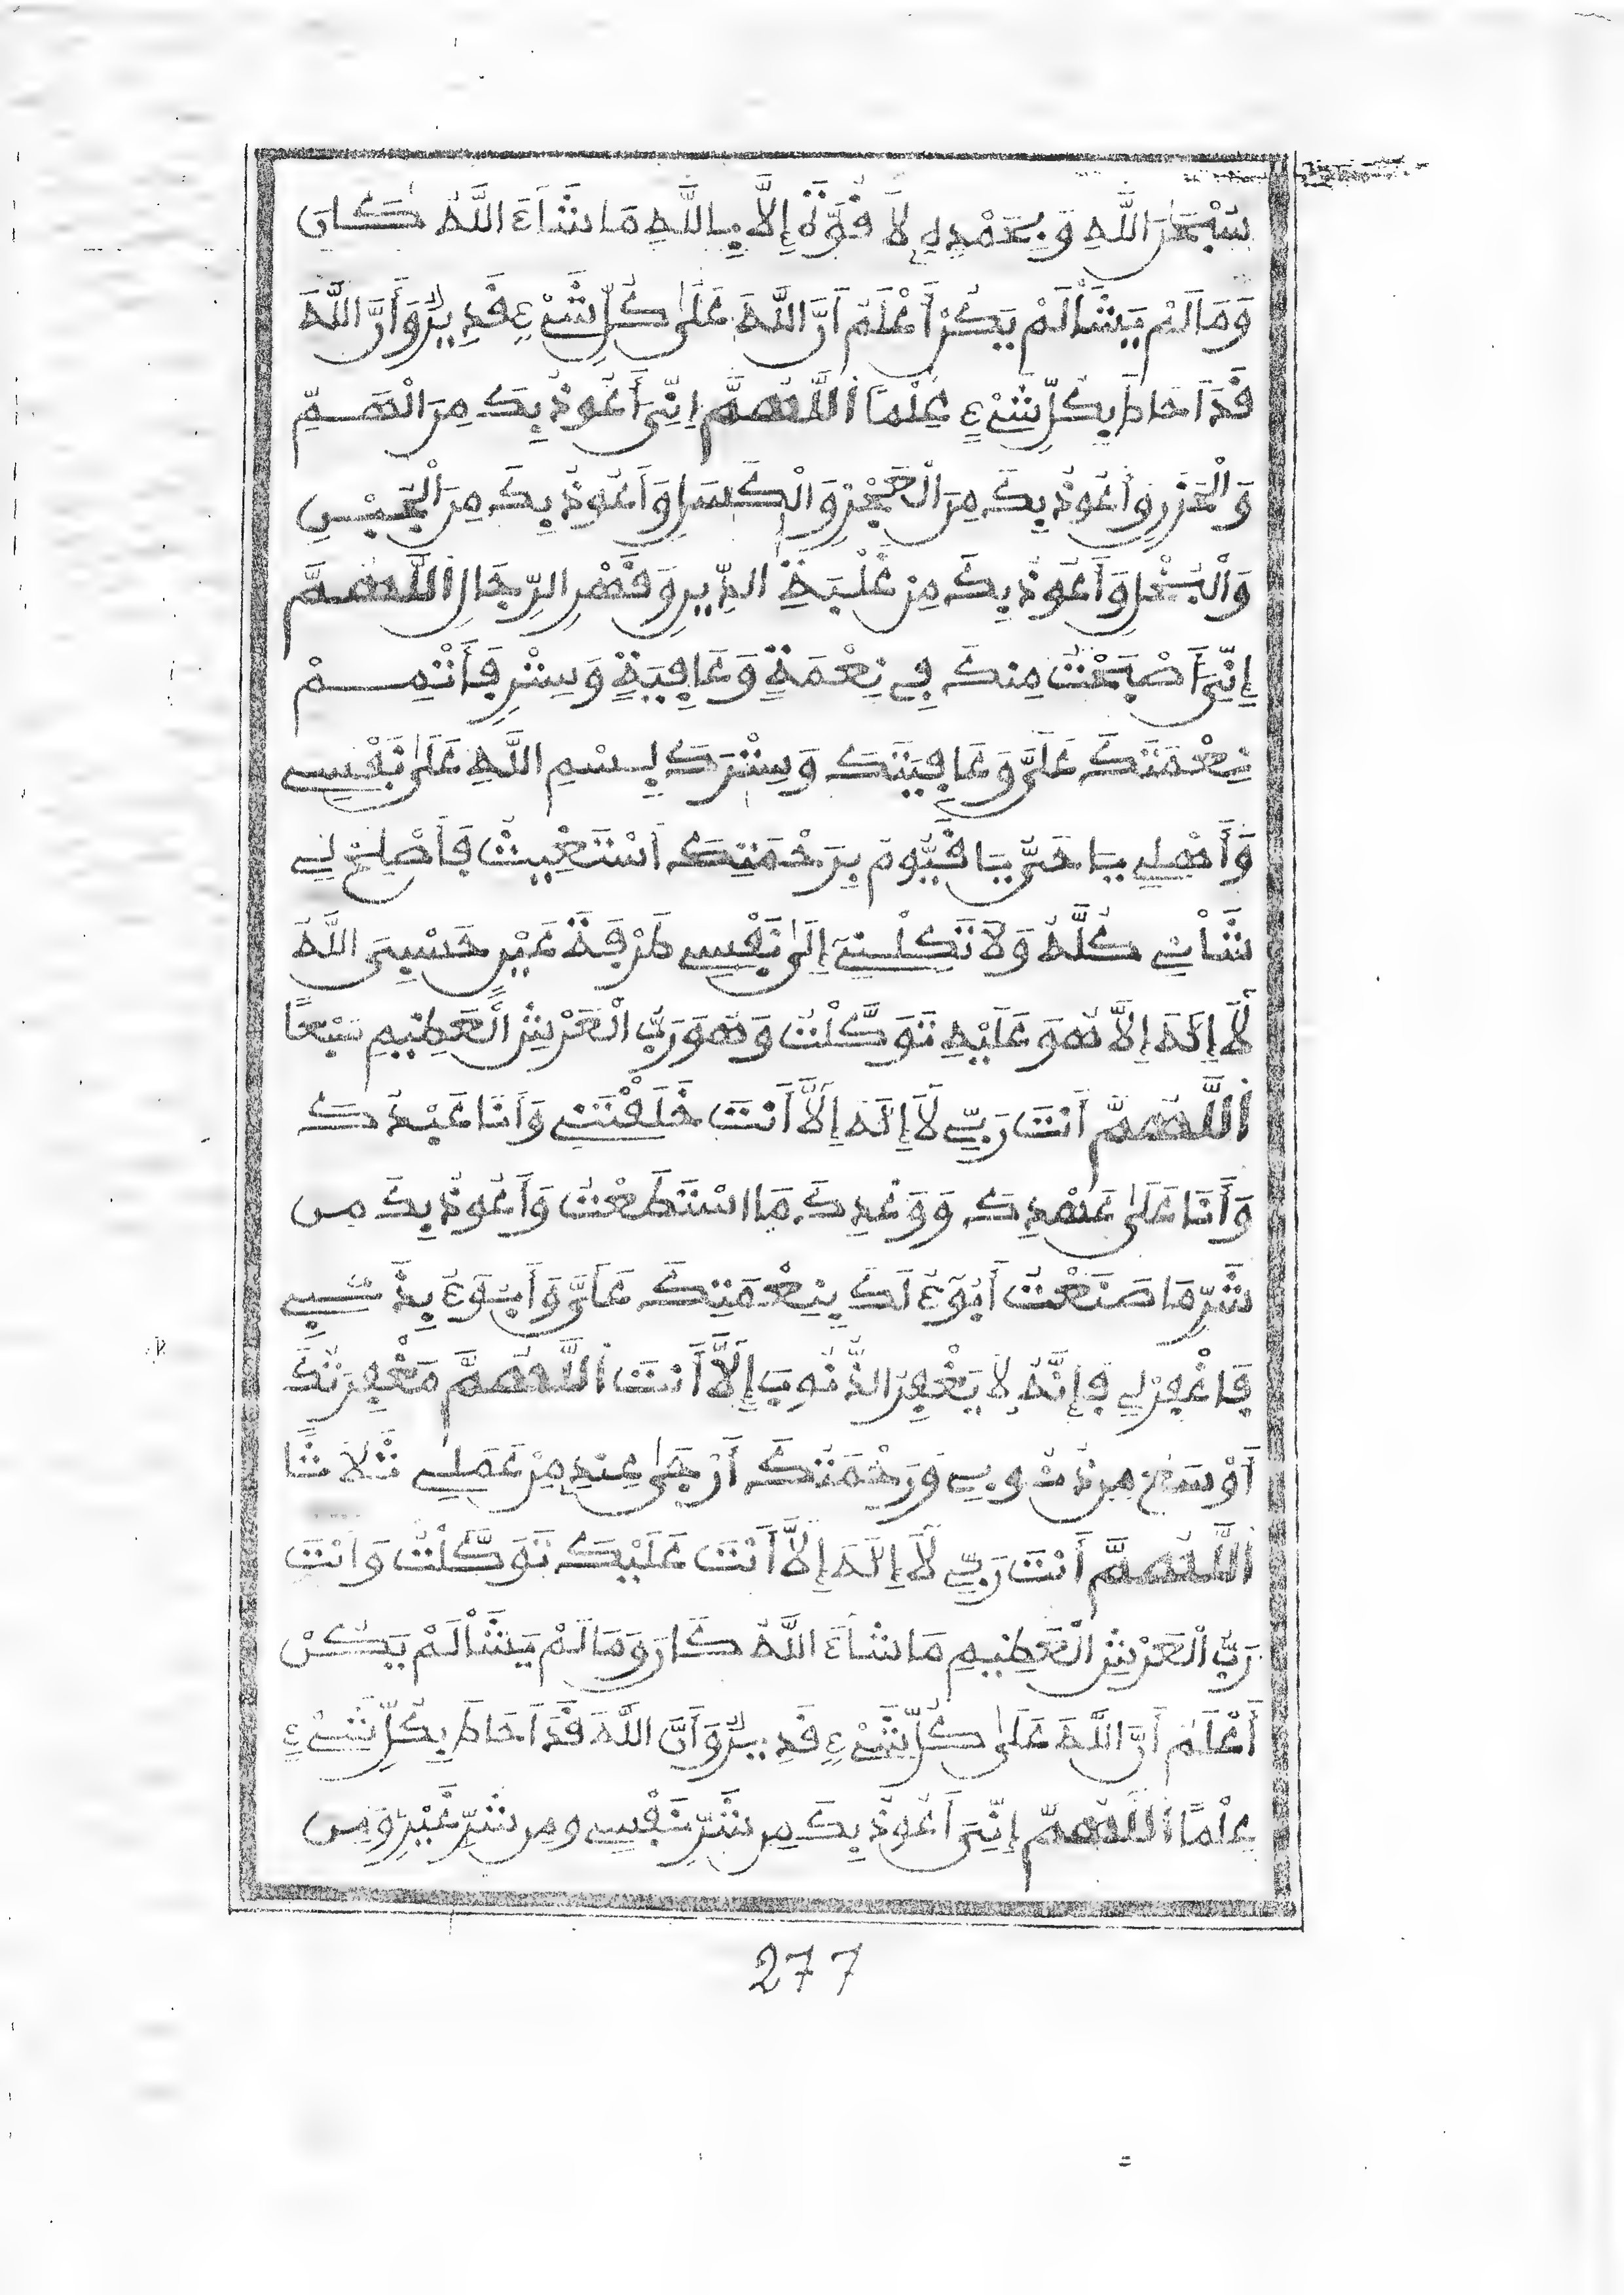 سُبْحَٰنَ اللَّهِ وَبِحَمْدِهِ لَا قُوَّةَ إِلَّا بِاللَّهِ مَا شَآءَ اللَّهُ كَانَ
وَمَا لَمْ يَشَأْ لَمْ يَكُنْ أَعْلَمُ أَنَّ اللَّهَ عَلَىٰ كُلِّ شَيْءٍ قَدِيرٌ وَأَنَّ اللَّهَ
قَدْ أَحَاطَ بِكُلِّ شَيْءٍ عِلْمًا اَللَّهُمَّ إِنِّي أَعُوذُ بِكَ مِنَ الْهَمِّ
وَالْحَزَنِ وَأَعُوذُ بِكَ مِنَ الْعَجْزِ وَالْكَسَلِ وَأَعُوذُ بِكَ مِنَ الْجُبْنِ
وَالْبُخْلِ وَأَعُوذُ بِكَ مِنْ غَلَبَةِ الدَّيْنِ وَقَهْرِ الرِّجَالِ اَللَّهُمَّ
إِنِّي أَصْبَحْتُ مِنكَ فِي نِعْمَةٍ وَعَافِيَةٍ وَسِتْرٍ فَأَتْمِمْ
نِعْمَتَكَ عَلَيَّ وَعَافِيَتَكَ وَسِتْرَكَ بِسْمِ اللَّهِ عَلَىٰ نَفْسِي
وَأَهْلِي يَا حَيُّ يَا قَيُّومُ بِرَحْمَتِكَ أَسْتَغِيثُ فَأَصْلِحْ لِي
شَأْنِي كُلَّهُ وَلَا تَكِلْنِي إِلَىٰ نَفْسِي طَرْفَةَ عَيْنٍ حَسْبِيَ اللَّهُ
لَآ إِلَٰهَ إِلَّا هُوَ عَلَيْهِ تَوَكَّلْتُ وَهُوَ رَبُّ الْعَرْشِ الْعَظِيمِ سَبْعًا
اَللَّهُمَّ أَنتَ رَبِّي لَآ إِلَٰهَ إِلَّآ أَنْتَ خَلَقْتَنِي وَأَنَا عَبْدُكَ
وَأَنَا عَلَىٰ عَهْدِكَ وَوَعْدِكَ مَا اسْتَطَعْتُ وَأَعُوذُ بِكَ مِن
شَرِّ مَا صَنَعْتُ أَبُوٓءُ لَكَ بِنِعْمَتِكَ عَلَيَّ وَأَبُوٓءُ بِذَنۢبِي
فَاغْفِرْ لِي فَإِنَّهُ لَا يَغْفِرُ الذُّنُوبَ إِلَّآ أَنتَ اَللَّهُمَّ مَغْفِرَتُكَ
أَوْسَعُ مِن ذُنُوبِي وَرَحْمَتُكَ أَرْجَىٰ عِندِي مِنْ عَمَلِي ثَلَاثًا
اَللَّهُمَّ أَنْتَ رَبِّي لَآ إِلَٰهَ إِلَّآ أَنْتَ عَلَيْكَ تَوَكَّلْتُ وَأَنْتَ
رَبُّ الْعَرْشِ الْعَظِيمِ مَا شَآءَ اللَّهُ كَانَ وَمَا لَمْ يَشَأْ لَمْ يَكُنْ
أَعْلَمُ أَنَّ اللَّهَ عَلَىٰ كُلِّ شَيْءٍ قَدِيرٌ وَأَنَّ اللَّهَ قَدْ أَحَاطَ بِكُلِّ شَيْءٍ
عِلْمًا اَللَّهُمَّ إِنِّي أَعُوذُ بِكَ مِن شَرِّ نَفْسِي وَمِن شَرِّ غَيْرِي وَمِن
277